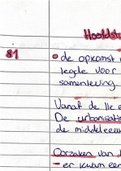 Hoofdst
§1
de opkomst
legde voor
samenleving
Vanaf de 11e e
De urbanisati
de middeleeuw
Oorzaken van
er kwam een